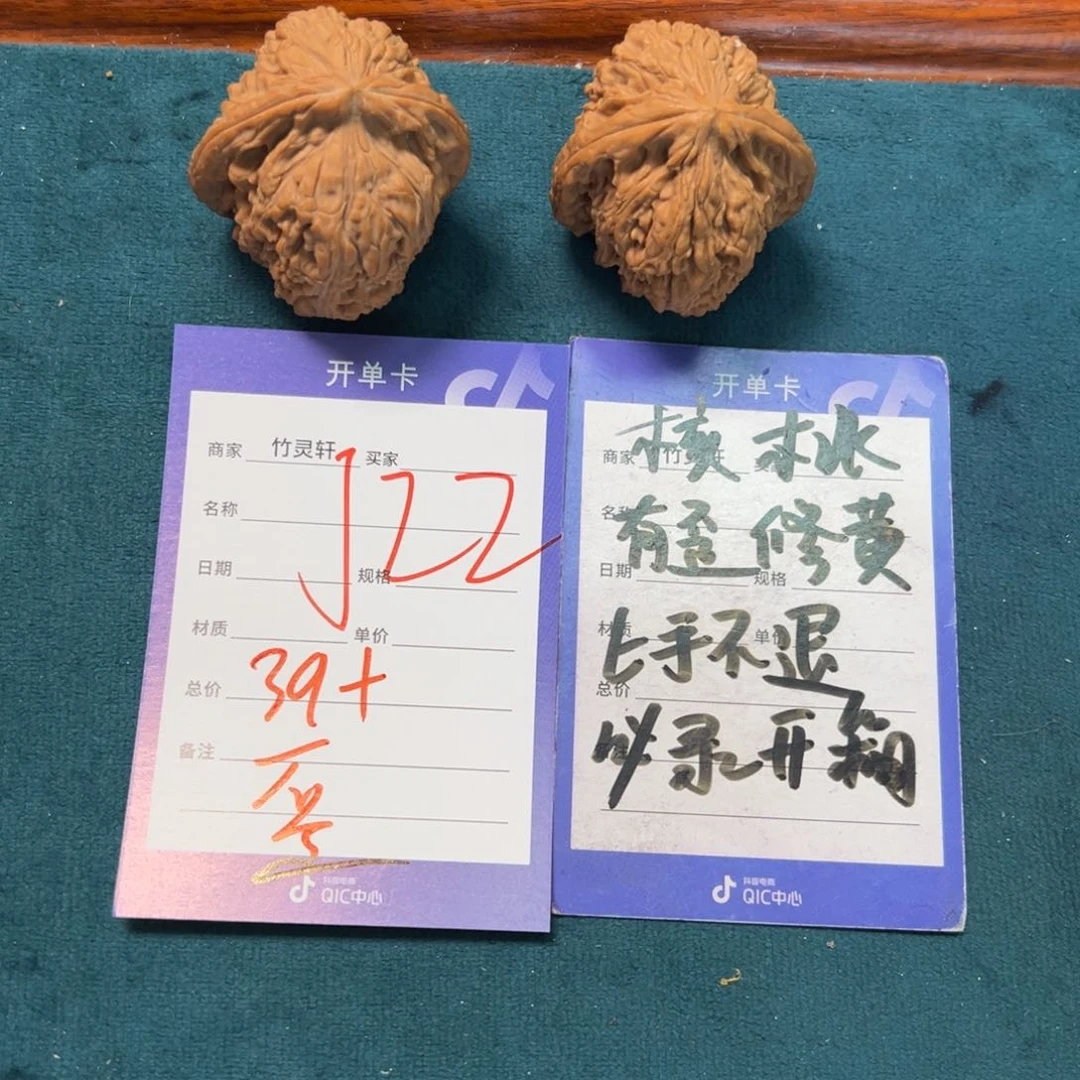 开单卡
商家 竹灵轩 买家
J22
名称
日期 规格
材质 单价
39+
总价
备注
抖音电商
QIC中心
开单卡
商家 竹灵轩
核桃
名称
有歪修黄
日期 规格
材质 单价
上手不退
总价
必录开箱
抖音电商
QIC中心